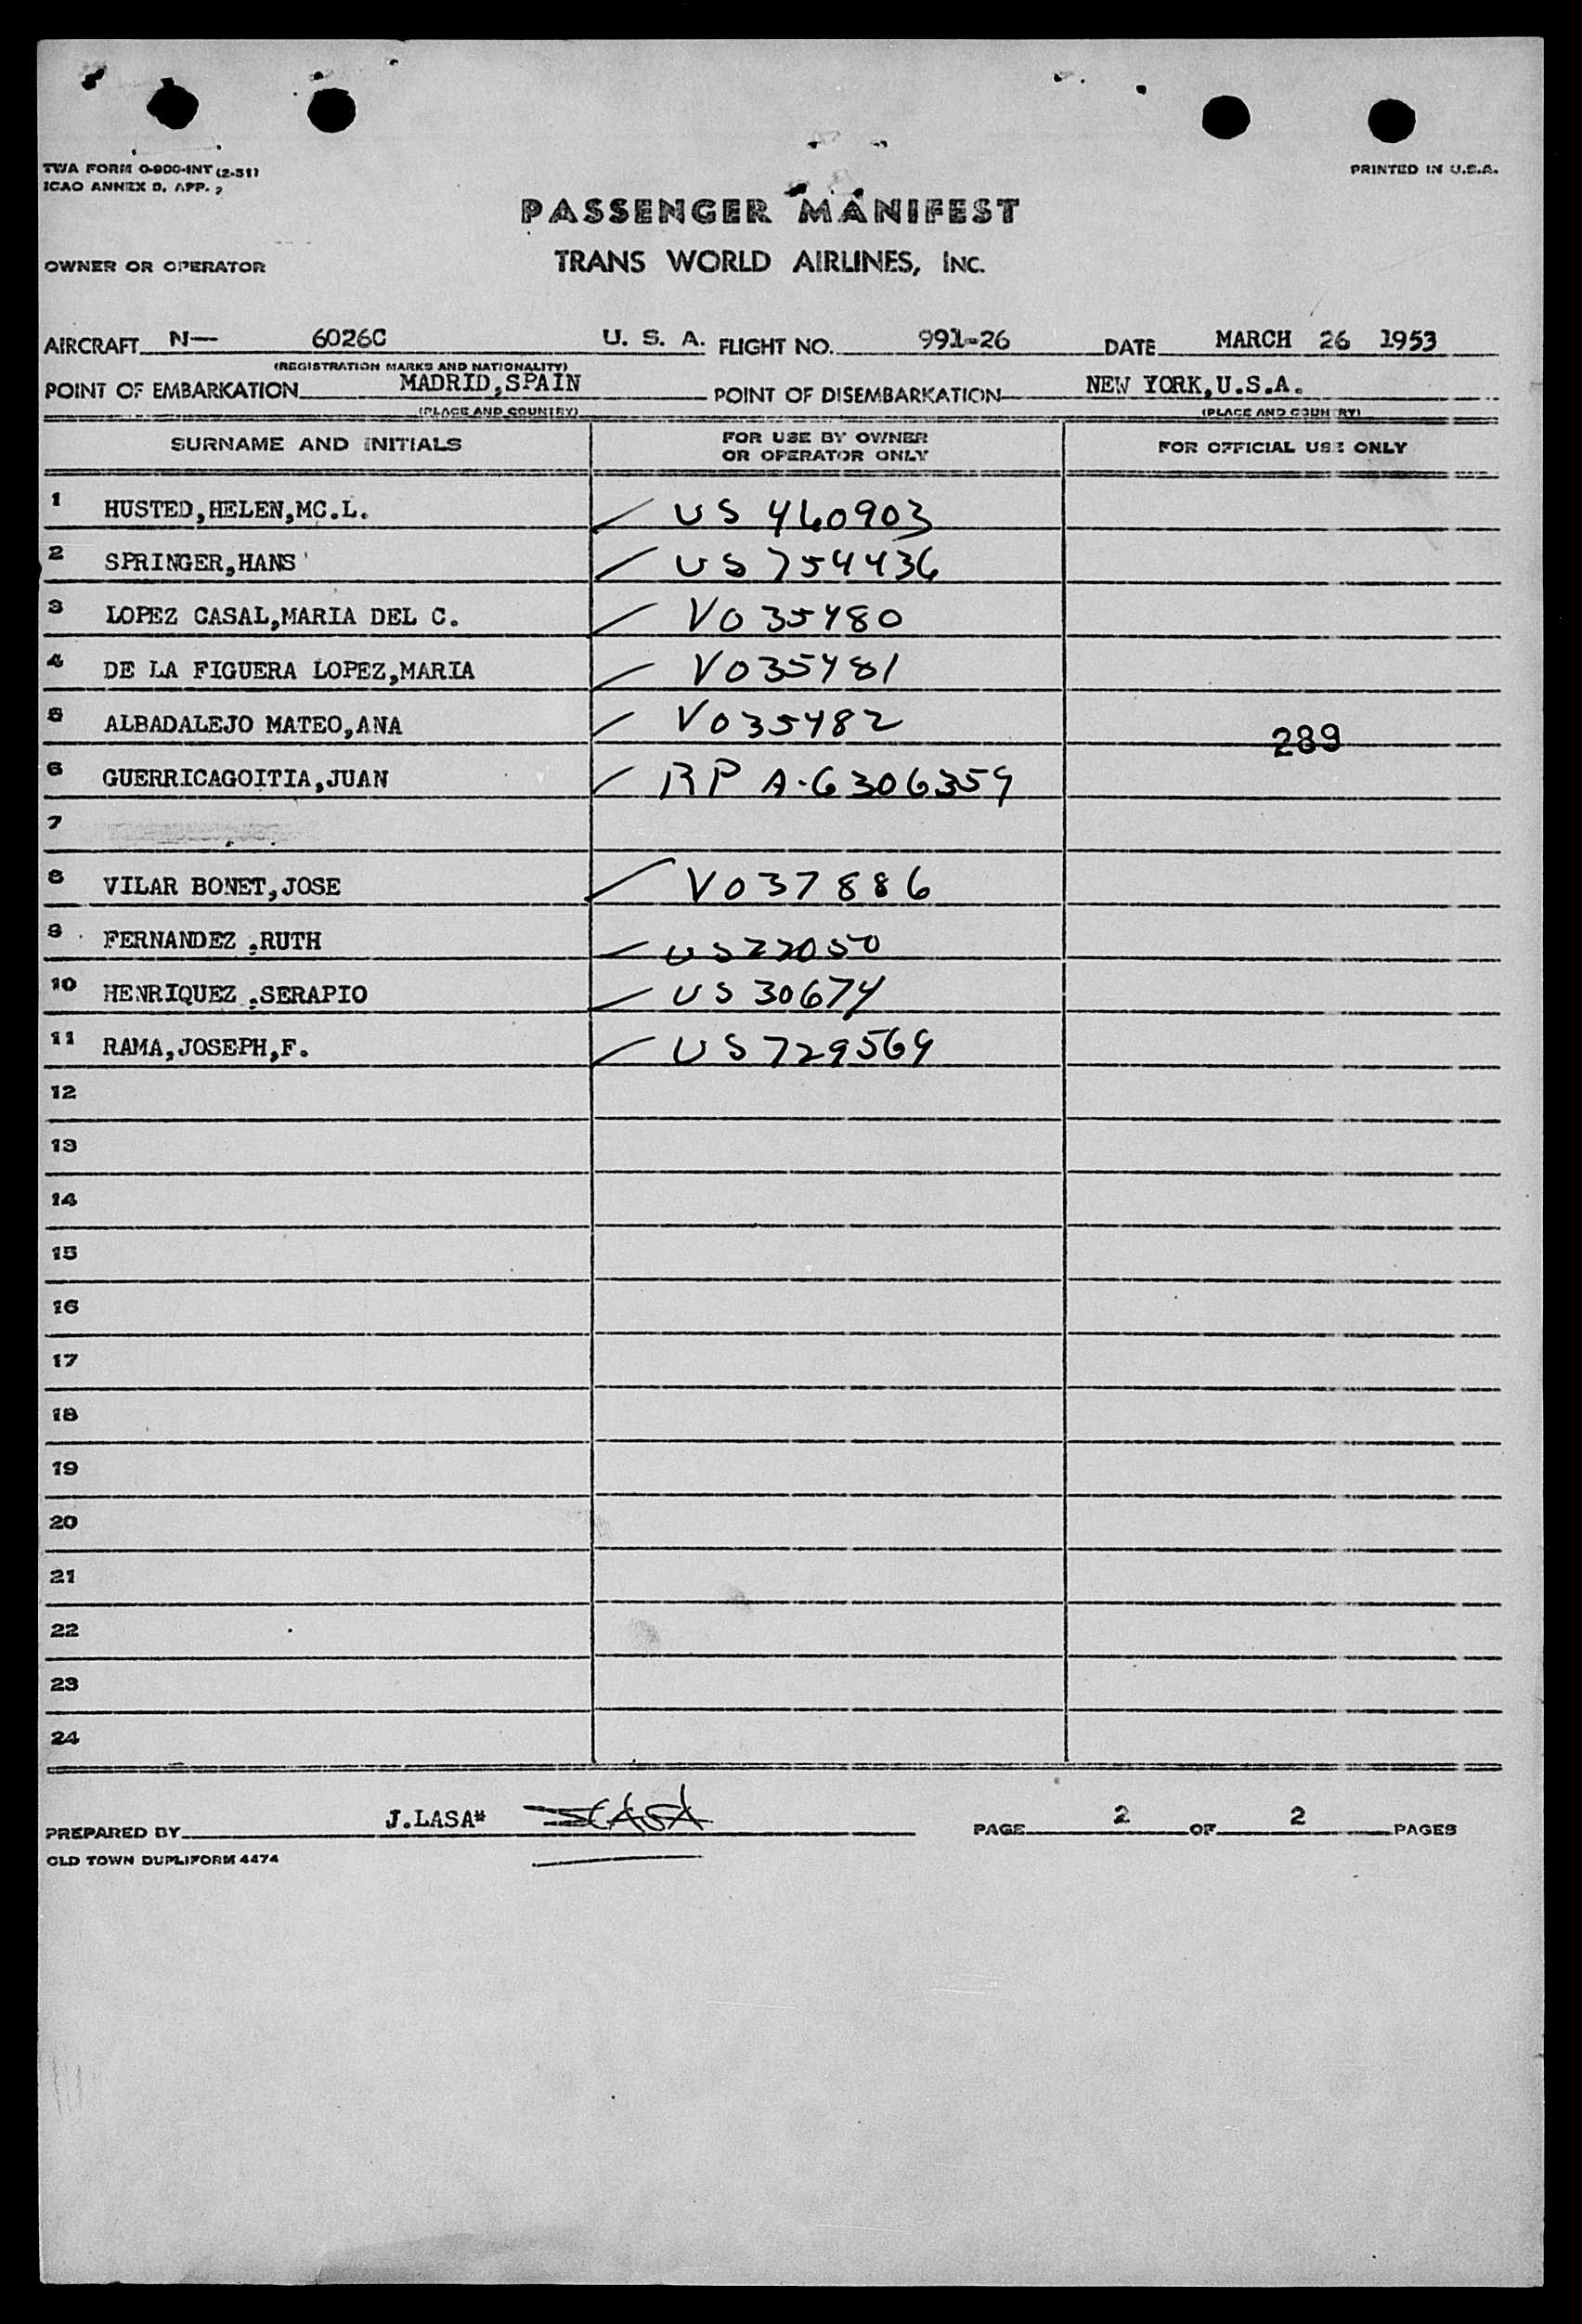 TWA FORM O-900-INT (2-51)
ICAO ANNEX 9, APP. 2
PRINTED IN U.S.A.
PASSENGER MANIFEST
OWNER OR OPERATOR TRANS WORLD AIRLINES, INC.
AIRCRAFT N— 6026C U. S. A. FLIGHT NO. 991-26 DATE MARCH 26 1953
(REGISTRATION MARKS AND NATIONALITY)
POINT OF EMBARKATION MADRID,SPAIN POINT OF DISEMBARKATION NEW YORK,U.S.A.
(PLACE AND COUNTRY) (PLACE AND COUNTRY)
SURNAME AND INITIALS FOR USE BY OWNER OR OPERATOR ONLY FOR OFFICIAL USE ONLY
1 HUSTED,HELEN,MC.L. ✓ US 460903
2 SPRINGER,HANS ✓ US 754436
3 LOPEZ CASAL,MARIA DEL C. ✓ V035480
4 DE LA FIGUERA LOPEZ,MARIA ✓ V035481
5 ALBADALEJO MATEO,ANA ✓ V035482 289
6 GUERRICAGOITIA,JUAN ✓ RP A-6306359
7
8 VILAR BONET,JOSE ✓ V037886
9 FERNANDEZ ,RUTH ✓ US 22050
10 HENRIQUEZ ,SERAPIO ✓ US 30674
11 RAMA,JOSEPH,F. ✓ US 729569
12
13
14
15
16
17
18
19
20
21
22
23
24
PREPARED BY J.LASA" PAGE 2 OF 2 PAGES
OLD TOWN DUPLIFORM 4474